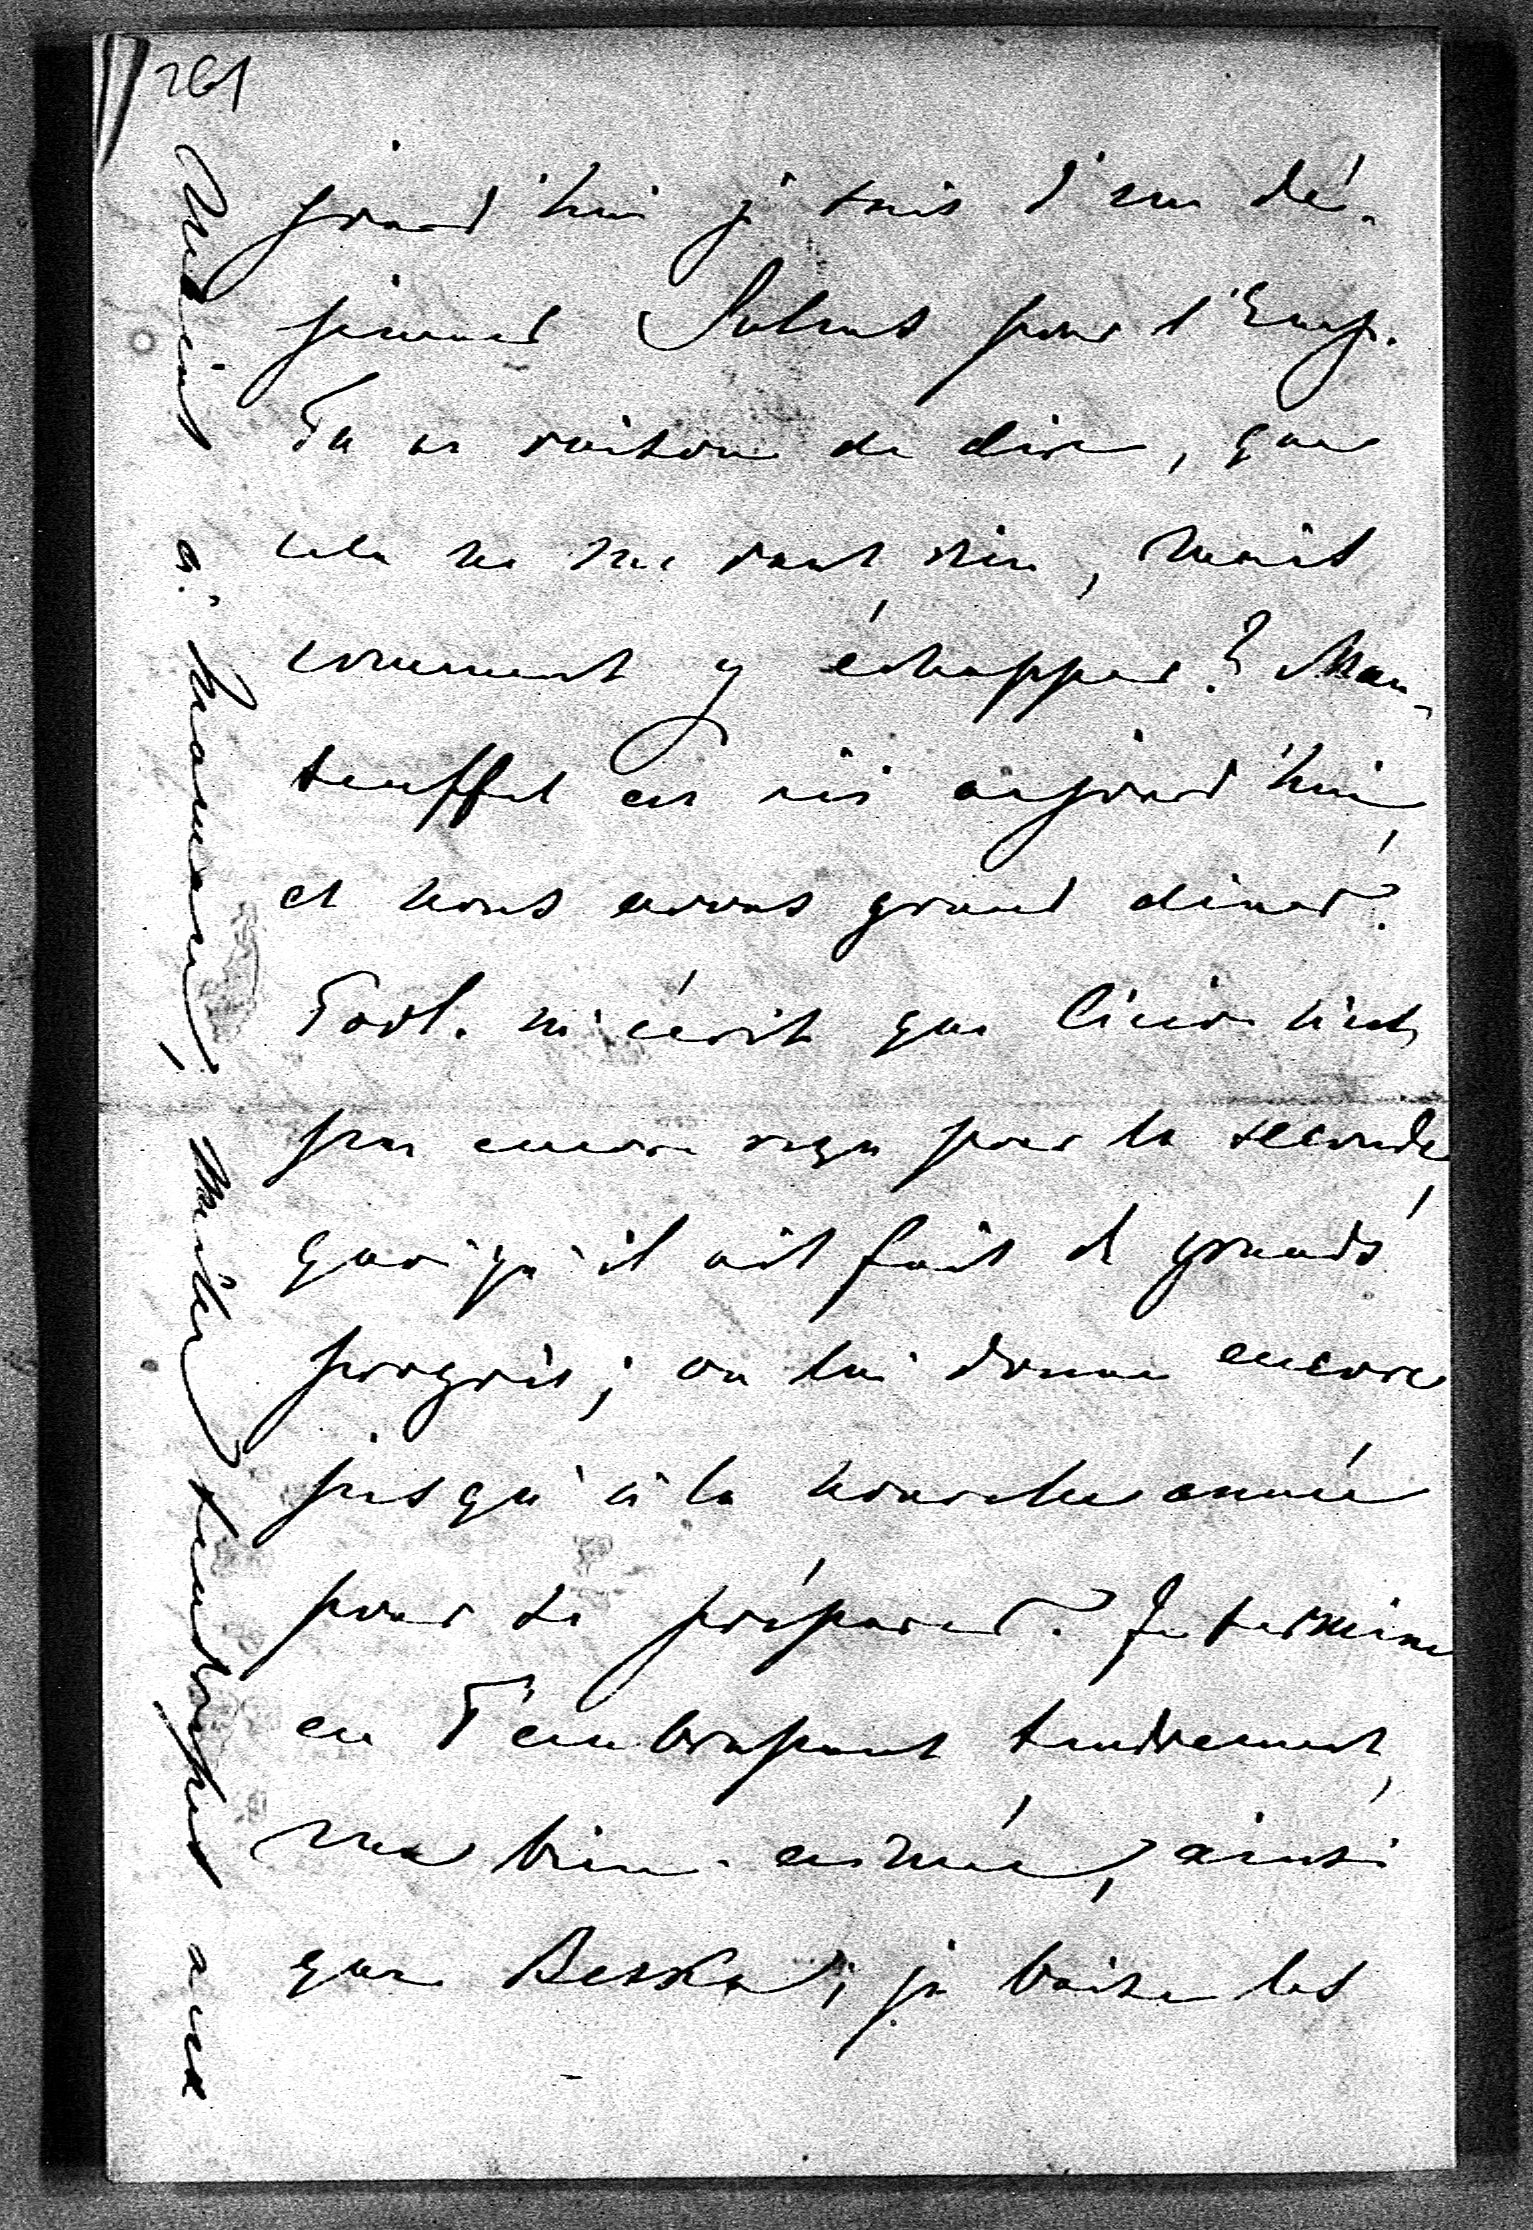 261
jourd'hui je suis d'un dé-
jeuner pour l'Emp.
Tu as raison de dire, que
cela ne me vaut rien, mais
comment y échapper? Man-
teuffel est ici aujourd'hui,
et nous avons grand diner.
m'écrit que n'est
pas encore reçu pour la seconde,
quoiqu'il ait fait de grands
progrès; on lui donne encore
jusqu'à la nouvelle année
pour se préparer. Je termine
en T'embrassant tendrement,
ma bien-aimée, ainsi
que ; je baise les
mains à maman, mille tendresses aux